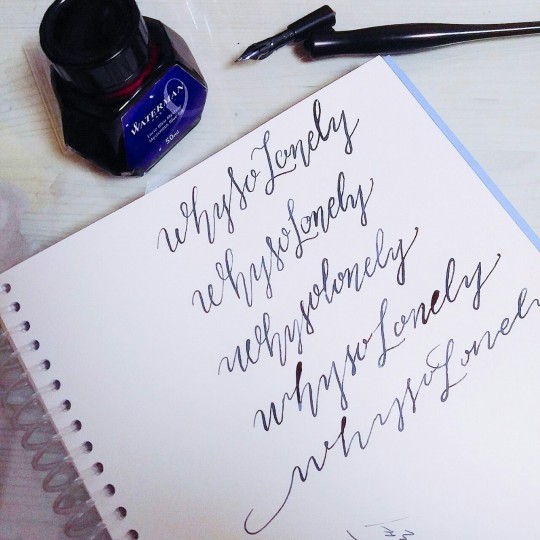 WATERMAN
50ml
whysoLonely
whysoLonely
whysolonely
whysoLonely
whysoLonely